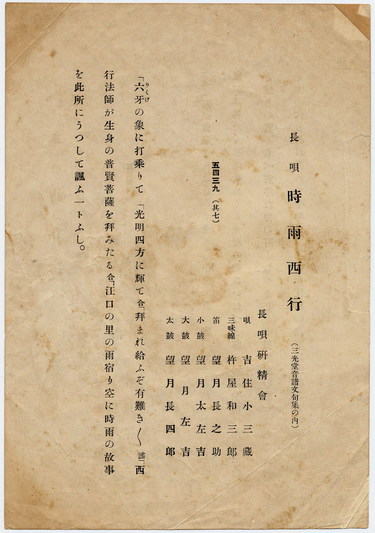 長唄 時雨西行 (三光堂音譜文句集の内)
長唄研精會
唄 吉住小三蔵
三味線 杵屋和三郎
笛 望月長之助
小鼓 望月太左吉
大鼓 望月左吉
太鼓 望月長四郎
五四三九 (其七)
「六牙の象に打乗りて「光明四方に輝て合「拜まれ給ふぞ有難き〱謡「西
行法師が生身の普賢菩薩を拜みたる合「江口の里の雨宿り空に時雨の故事
を此所にうつして諷ふ一トふし。